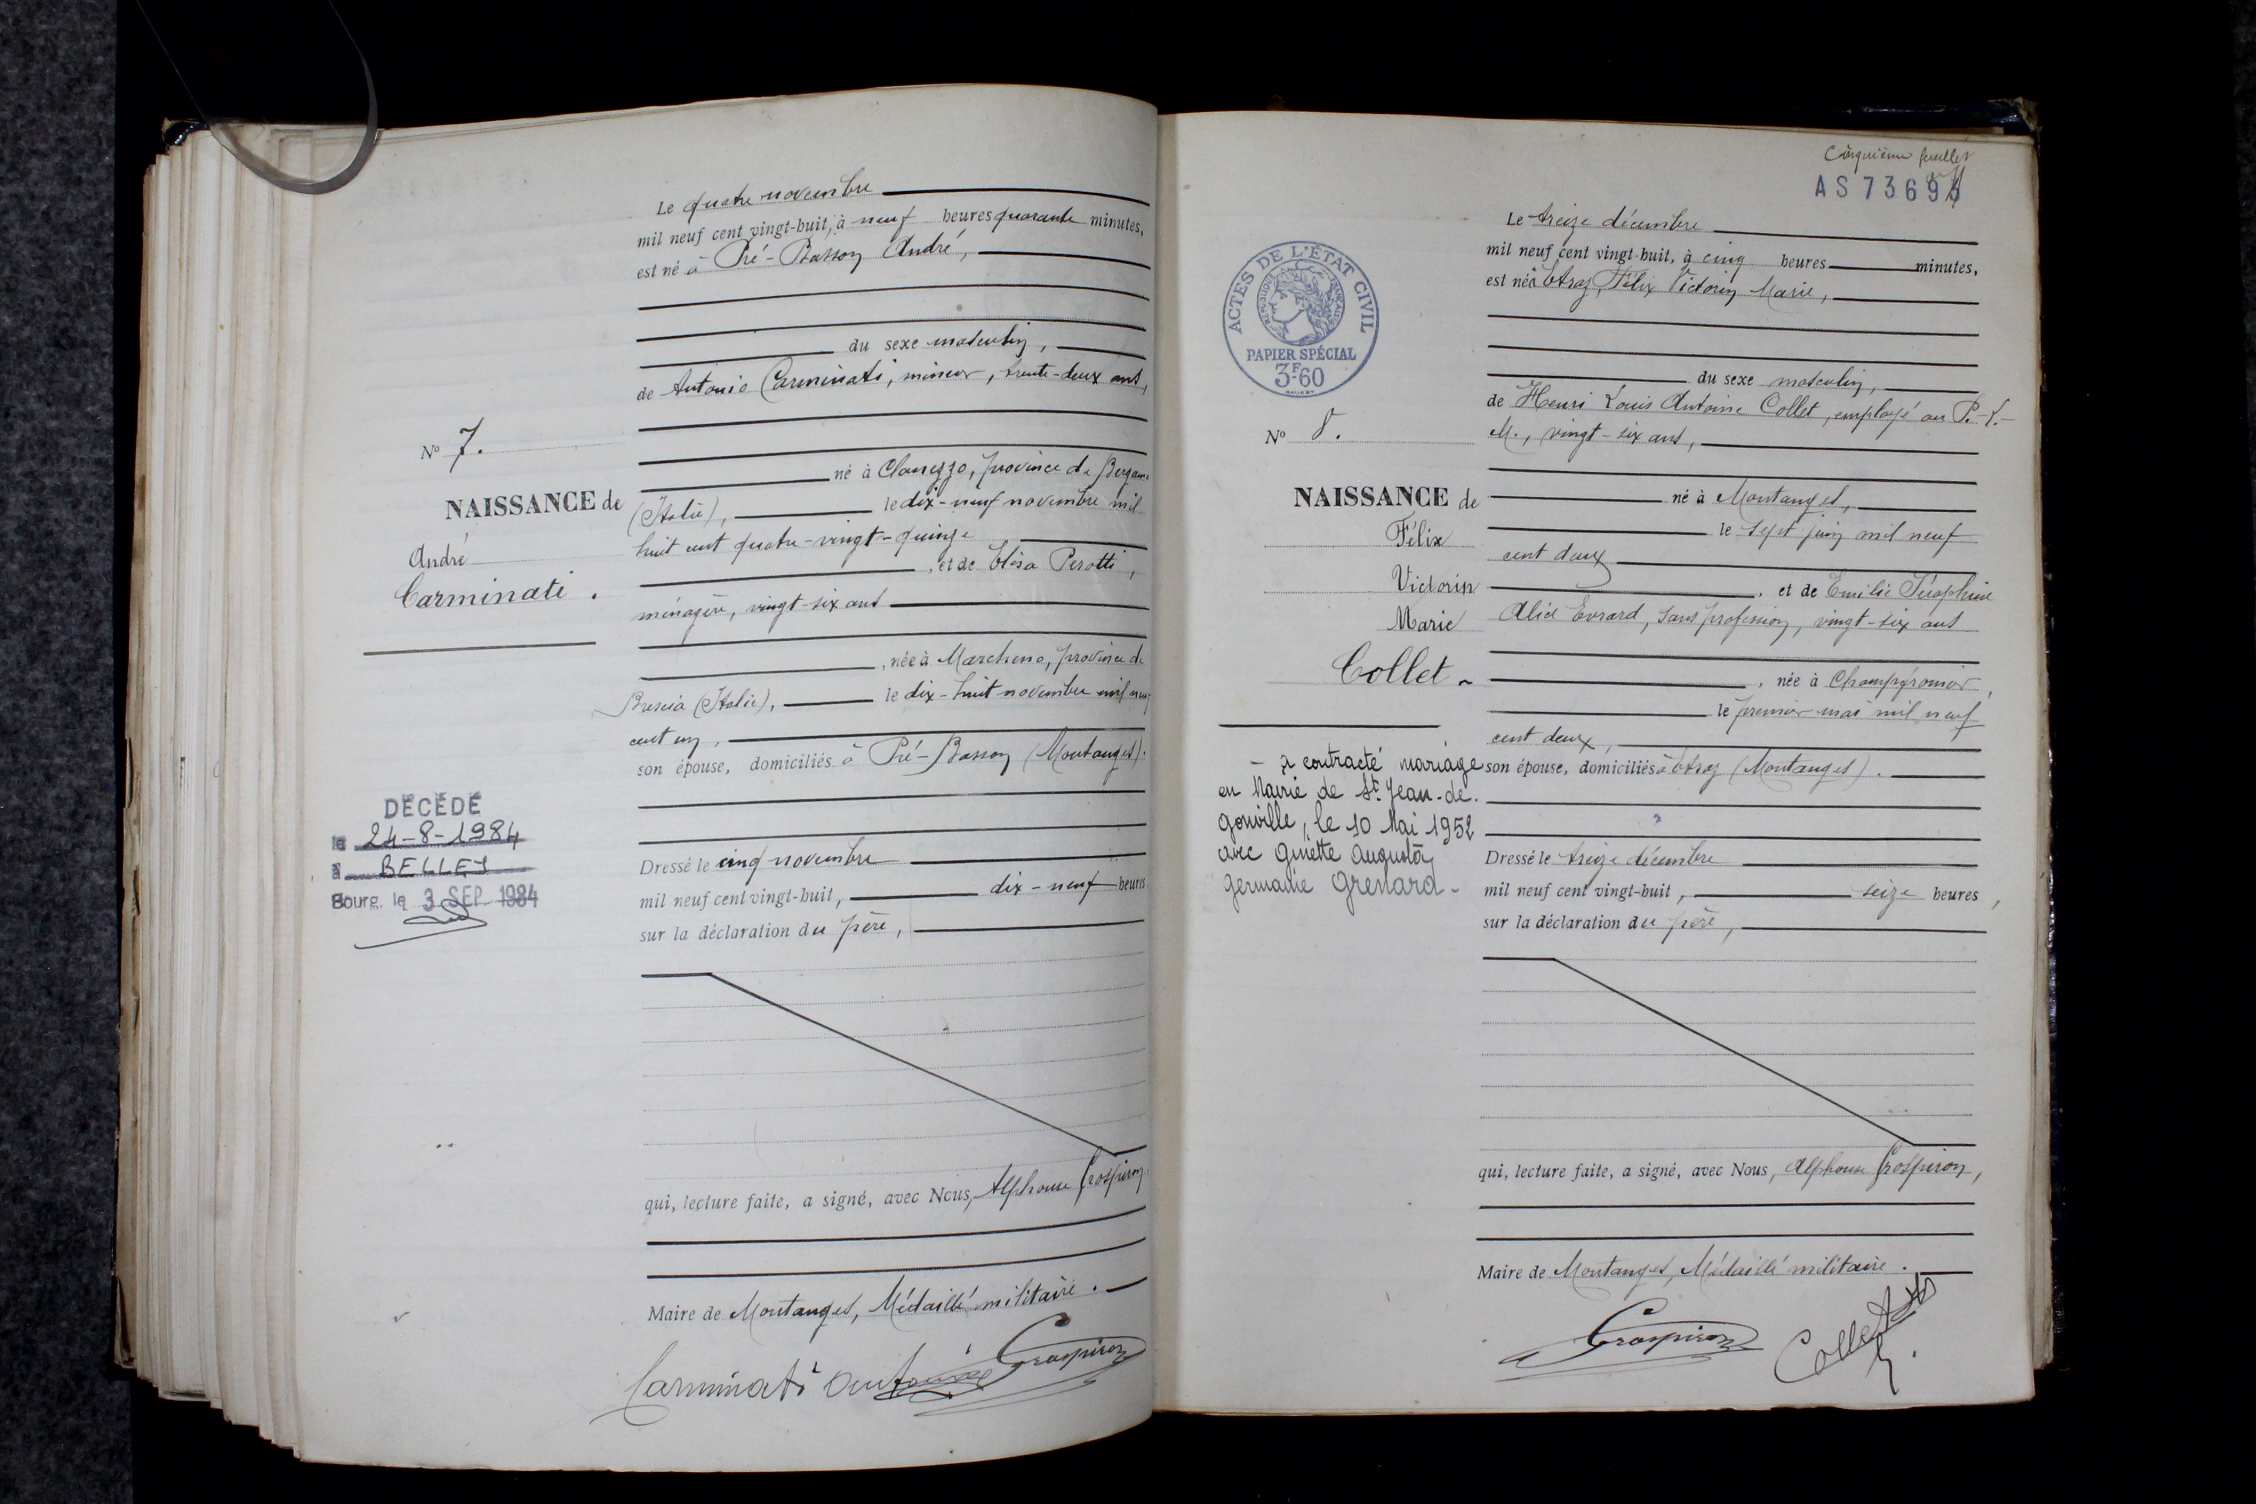 Le quatre novembre
mil neuf cent vingt-huit, à neuf heures quarante minutes,
est né à Pré-Basson André,
du sexe masculin,
de Antonio Carminati, mineur, trente-deux ans,
né à Clanezzo, province de Bergame
(Italie), le dix-neuf novembre mil
huit cent quatre-vingt-quinze
, et de Elisa Perotti,
ménagère, vingt-six ans
, née à Marcheno, province de
Brescia (Italie), le dix-huit novembre mil neuf
cent un,
son épouse, domiciliés à Pré-Basson (Montanges).
Dressé le cinq novembre
mil neuf cent vingt-huit, dix-neuf heures
sur la déclaration du père,
qui, lecture faite, a signé, avec Nous, Alphonse Grospiron
Maire de Montanges, Médaillé militaire.
Carminati Grospiron
N° 7.
NAISSANCE de
André
Carminati.
DÉCÉDÉ
le 24-8-1984
à BELLEY
Bourg, le 3 SEP 1984
Cinquième feuillet
AS 7369
ACTES DE L'ÉTAT CIVIL
RÉPUBLIQUE FRANÇAISE
PAPIER SPÉCIAL
3F60
N° 8.
NAISSANCE de
Félix
Victorin
Marie
Collet
- a contracté mariage
en Mairie de St Jean-de-
Gonville, le 10 Mai 1952
avec Ginette Augusta
Germaine Grenard -
Le treize décembre
mil neuf cent vingt-huit, à cinq heures minutes,
est né à Etraz, Félix Victorin Marie,
du sexe masculin,
de Henri Louis Antoine Collet, employé au P.-L.-
M., vingt-six ans,
né à Montanges,
le sept juin mil neuf
cent deux
, et de Emilie Séraphine
Alice Evrard, sans profession, vingt-six ans
, née à Champfromier,
le premier mai mil neuf
cent deux,
son épouse, domiciliés à Etraz (Montanges).
Dressé le treize décembre
mil neuf cent vingt-huit, seize heures,
sur la déclaration du père,
qui, lecture faite, a signé, avec Nous, Alphonse Grospiron,
Maire de Montanges, Médaillé militaire.
Grospiron Collet